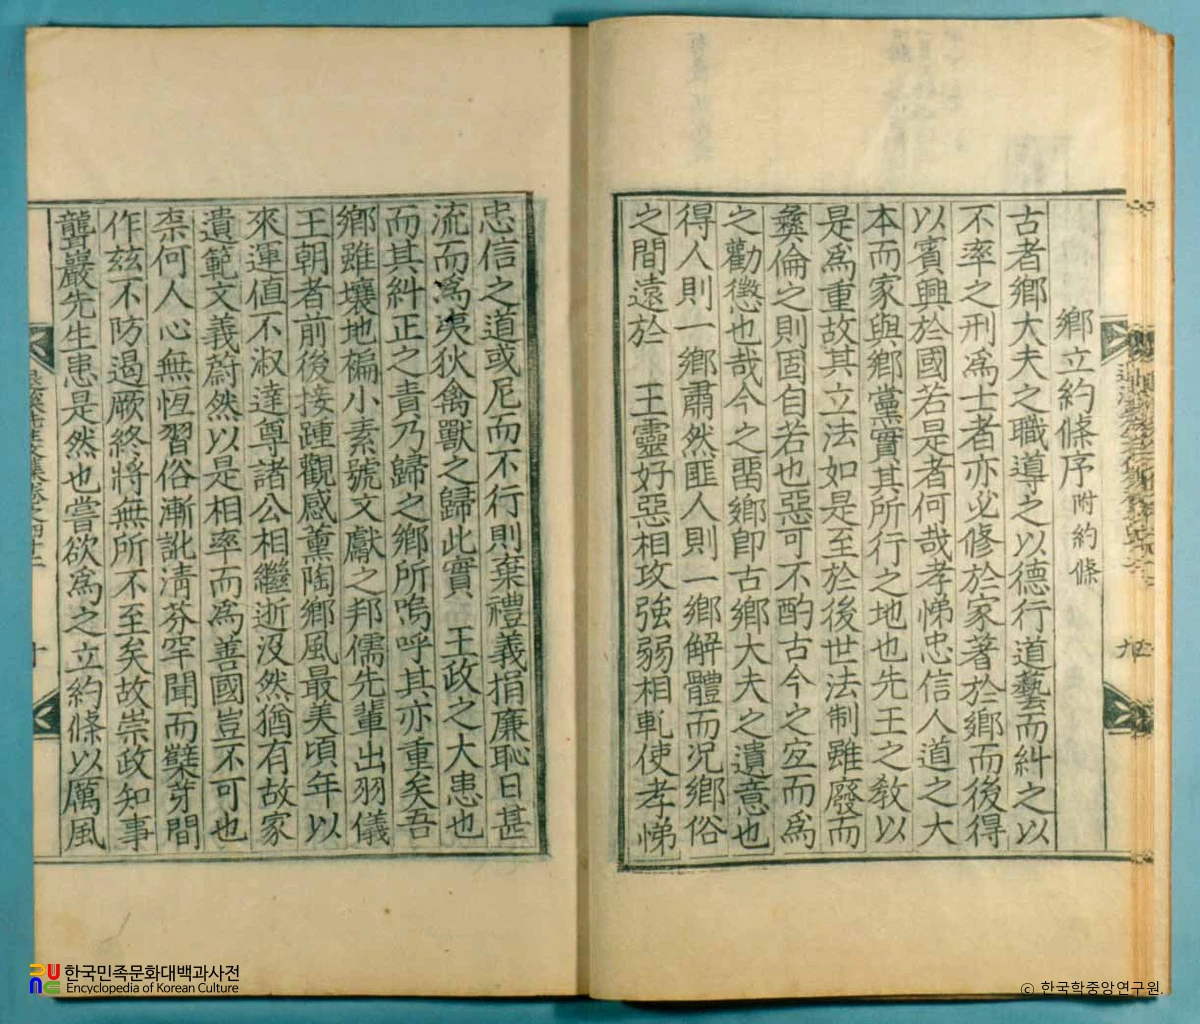 鄕立約條序 附約條
古者鄕大夫之職導之以德行道藝而糾之以
不率之刑爲士者亦必修於家著於鄕而後得
以賓興於國若是者何哉孝悌忠信人道之大
本而家與鄕黨實其所行之地也先王之敎以
是爲重故其立法如是至於後世法制雖廢而
彝倫之則固自若也惡可不酌古今之宜而爲
之勸懲也哉今之畱鄕卽古鄕大夫之遺意也
得人則一鄕肅然匪人則一鄕解體而況鄕俗
之間遠於 王靈好惡相攻強弱相軋使孝悌
忠信之道或尼而不行則棄禮義捐廉恥日甚
流而爲夷狄禽獸之歸此實 王政之大患也
而其糾正之責乃歸之鄕所嗚呼其亦重矣吾
鄕雖壤地褊小素號文獻之邦儒先輩出羽儀
王朝者前後接踵觀感薰陶鄕風最美頃年以
來運値不淑達尊諸公相繼逝沒然猶有故家
遺範文義蔚然以是相率而爲善國豈不可也
柰何人心無恆習俗漸訛淸芬罕聞而糱芽間
作玆不防遏厥終將無所不至矣故崇政知事
聾巖先生患是然也嘗欲爲之立約條以厲風
九
十
한국민족문화대백과사전
Encyclopedia of Korean Culture
© 한국학중앙연구원.